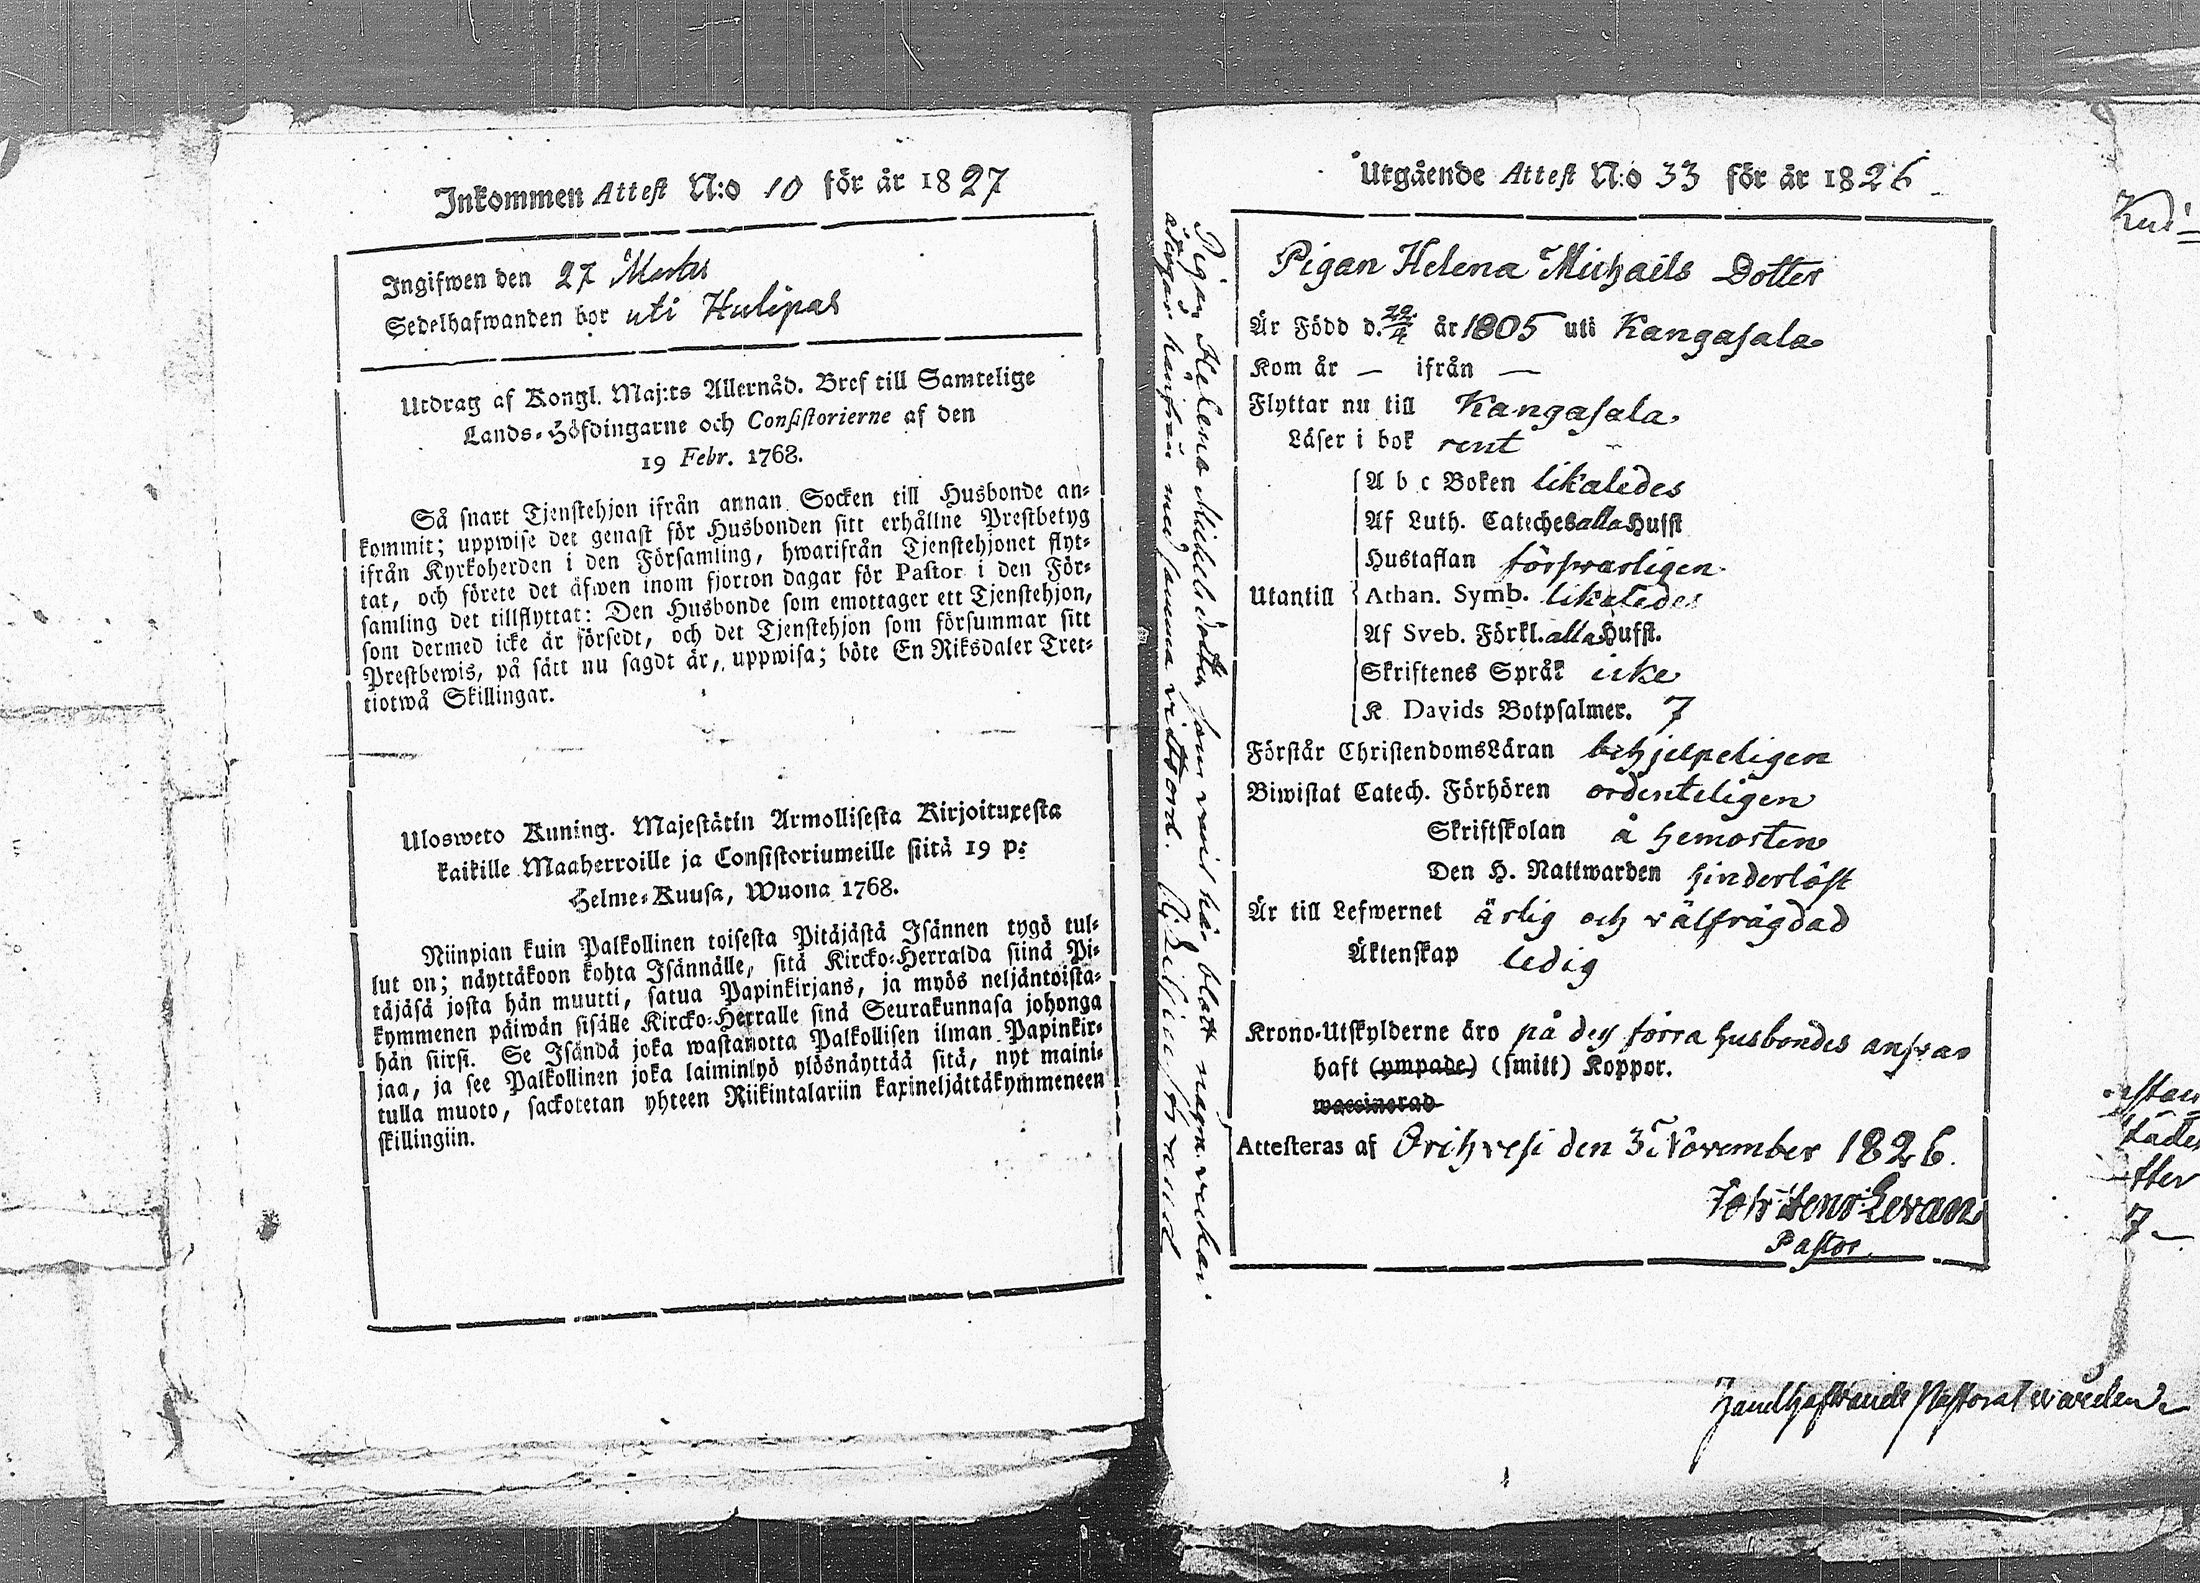 Inkommen Attest N:o 10 för år 1827
Ingifwen den 27 Martii
Sedelhafwanden bor uti Hulipas
Utdrag af Kongl. Maj:ts Allernåd. Bref till Samtelige
Lands-Höfdingarne och Consistorierne af den
19 Febr. 1768.
Så snart Tjenstehjon ifrån annan Socken till Husbonde an-
kommit; uppwise det genast för Husbonden sitt erhållne Prestbetyg
ifrån Kyrkoherden i den Församling, hwarifrån Tjenstehjonet flyt-
tat, och förete det äfwen inom fjorton dagar för Pastor i den För-
samling det tillflyttat: Den Husbonde som emottager ett Tjenstehjon,
som dermed icke är försedt, och det Tjenstehjon som försummar sitt
Prestbewis, på sätt nu sagdt är, uppwisa; böte En Riksdaler Tret-
tiotwå Skillingar.
Ulosweto Kuning. Majestätin Armollisesta Kirjoituxesta
kaikille Maaherroille ja Consistoriumeille siitä 19 p:
Helme-Kuusa, Wuona 1768.
Niinpian kuin Palkollinen toisesta Pitäjästä Isännen tygö tul-
lut on; näyttäkoon kohta Isännälle, sitä Kircko-Herralda siinä Pi-
täjäsä josta hän muutti, satua Papinkirjans, ja myös neljäntoista-
kymmenen päiwän sisälle Kircko-Herralle sinä Seurakunnasa johonga
hän siirsi. Se Isändä joka wastanotta Palkollisen ilman Papinkir-
jaa, ja see Palkollinen joka laiminlyö ylösnäyttää sitä, nyt maini-
tulla muoto, sackotetan yhteen Riikintalariin kaxineljättäkymmeneen
skillingiin.
Pigan Helena Mickelsdotter som varit här blott några veckor
återgår härifrån med samma vittsord.
Utgående Attest N:o 33 för år 1826
Pigan Helena Michaels Dotter
År Född d. 22/4 år 1805 uti Kangasala
Kom år — ifrån —
Flyttar nu till Kangasala.
Läser i bok rent
A b c Boken likaledes
Af Luth. Cateches alla Hufst
Hustaflan försvarligen
Utantill Athan. Symb. likaledes
Af Sveb. Förkl. alla Hufst.
Skriftenes Språk icke
K. Davids Botpsalmer. 7
Förstår ChristendomsLäran behjelpeligen
Biwistat Catech. Förhören ordenteligen
Skriftskolan å hemorten
Den H. Nattwarden hinderlöst
Är till Lefwernet ärlig och välfrägdad
Äktenskap ledig
Krono-Utskylderne äro på dess förra husbondes ansvar
haft (ympade) (smitt) Koppor.
waccinerad
Attesteras af Orihvesi den 3 November 1826.
Joh: Henr: Levan
Pastor
7